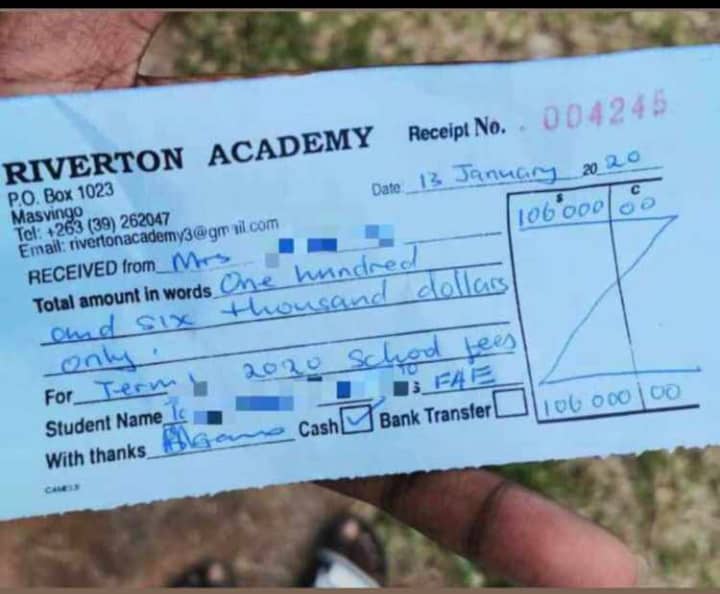 RIVERTON ACADEMY
Receipt No. 004245
P.O. Box 1023
Masvingo
Tel: +263 (39) 262047
Email: rivertonacademy3@gmail.com
Date 13 January 20 20
$ C
106 000 00
RECEIVED from Mrs
Total amount in words One hundred
and six thousand dollars
only.
For Term 1 2020 School fees
Student Name
With thanks
Cash ✓ Bank Transfer
106 000 00